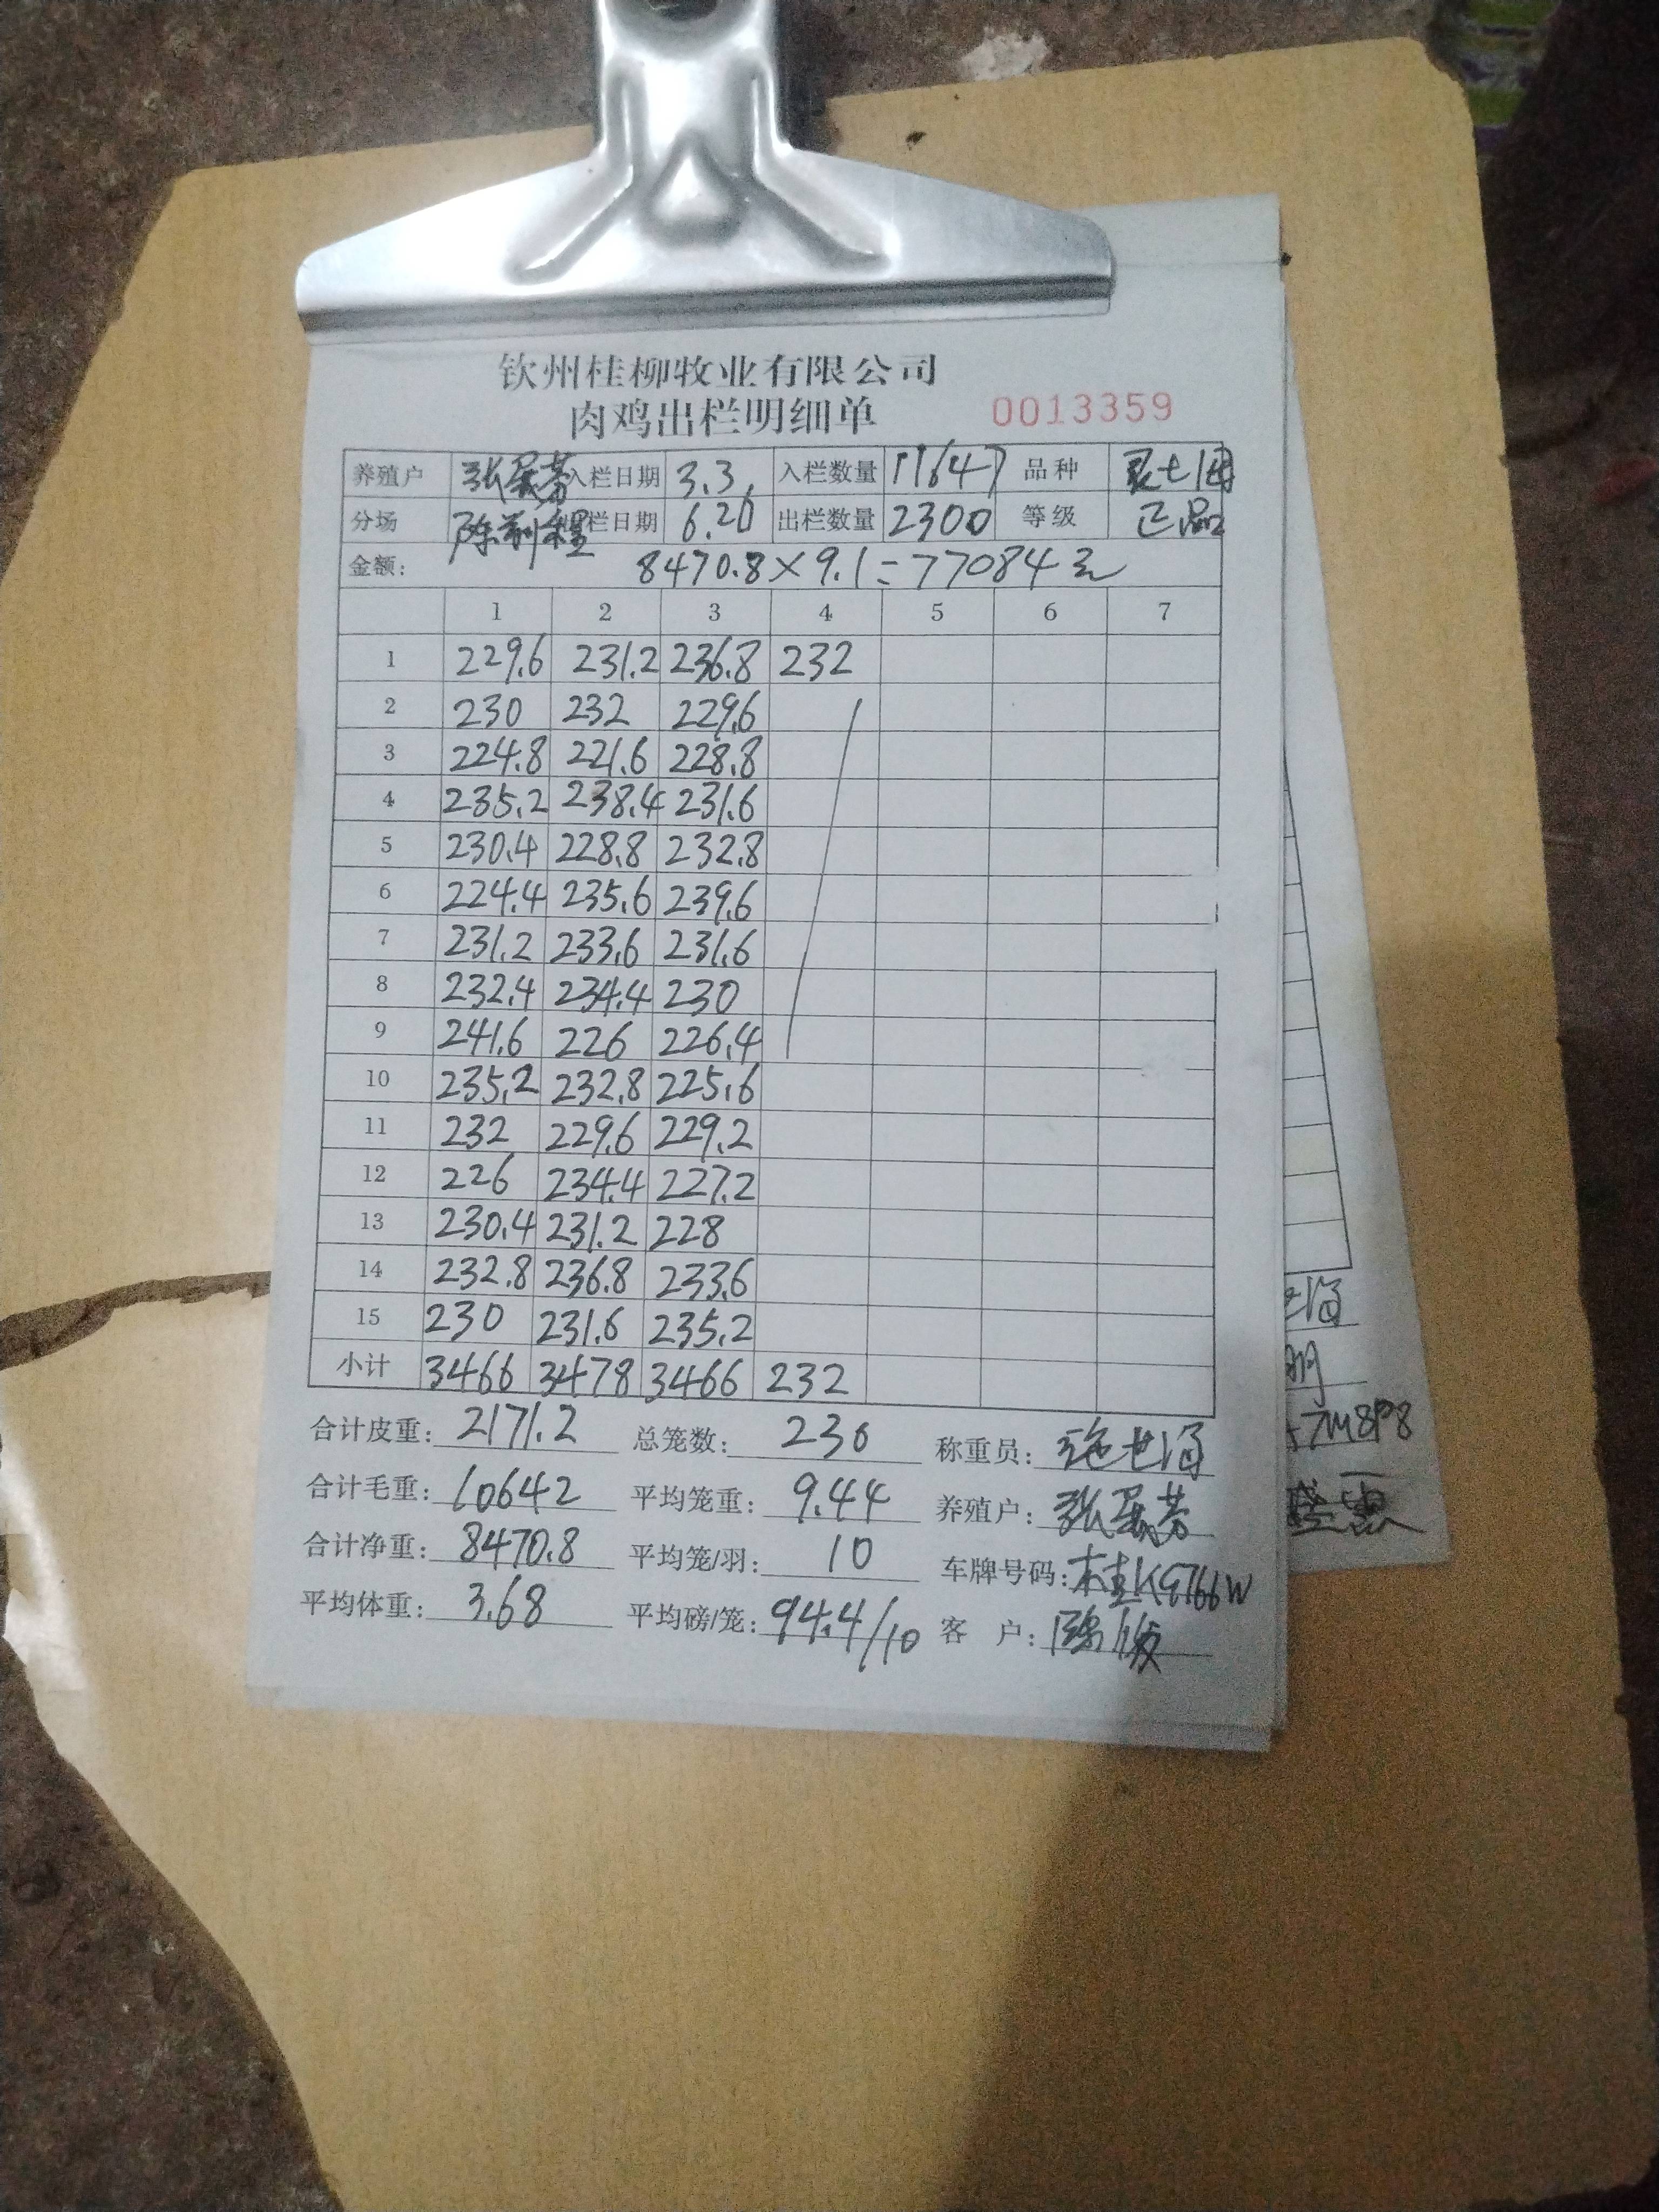 钦州桂柳牧业有限公司
肉鸡出栏明细单 0013359
养殖户 张 芬 入栏日期 3.3. 入栏数量 11647 品种
分场 陈 程 栏日期 6.20 出栏数量 2300 等级 正品
金额: 8470.8×9.1=77084元
1 2 3 4 5 6 7
1 229.6 231.2 236.8 232
2 230 232 229.6
3 224.8 221.6 228.8
4 235.2 238.4 231.6
5 230.4 228.8 232.8
6 224.4 235.6 239.6
7 231.2 233.6 231.6
8 232.4 234.4 230
9 241.6 226 226.4
10 235.2 232.8 225.6
11 232 229.6 229.2
12 226 234.4 227.2
13 230.4 231.2 228
14 232.8 236.8 233.6
15 230 231.6 235.2
小计 3466 3478 3466 232
合计皮重: 2171.2 总笼数: 230 称重员:
合计毛重: 10642 平均笼重: 9.44 养殖户: 张 芬
合计净重: 8470.8 平均笼/羽: 10 车牌号码:
平均体重: 3.68 平均磅/笼: 94.4/10 客 户:
7M8P8